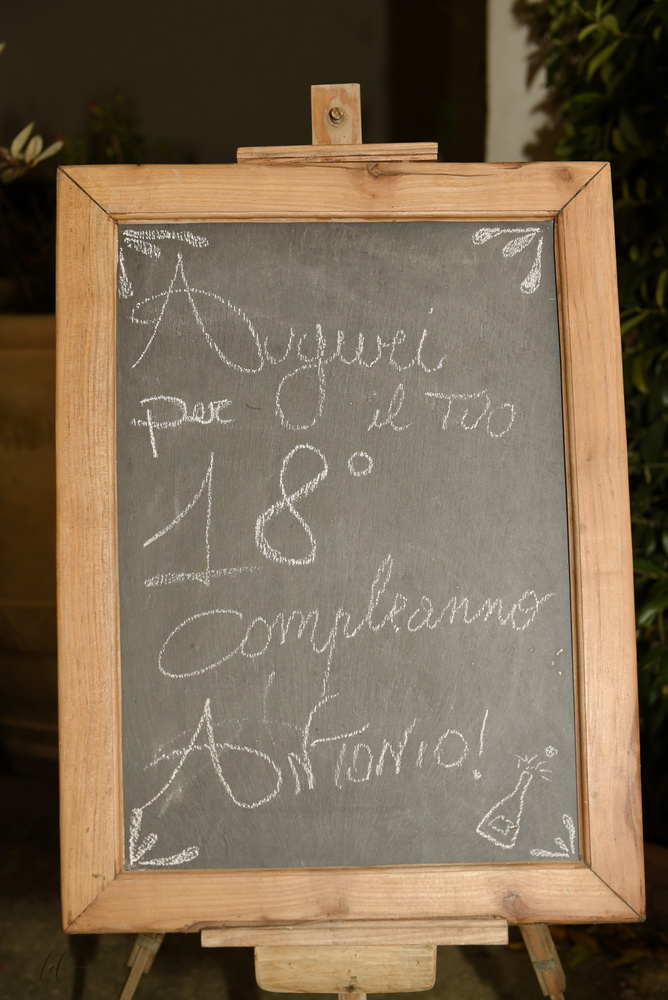 Auguri
per il tuo
18°
compleanno
Antonio!